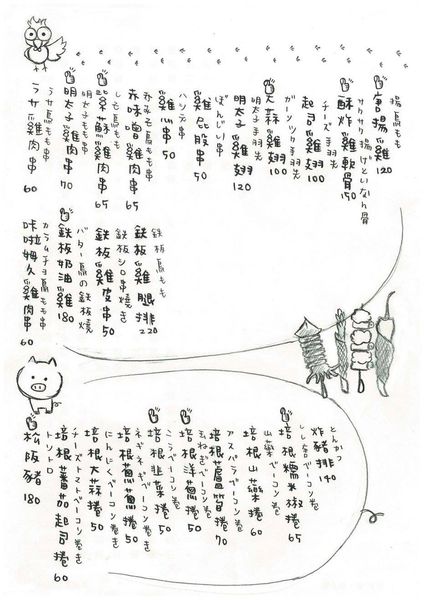 揚鳥もも
唐揚雞 120
サクサク揚げといなん骨
酥炸雞軟骨 150
チーズ手羽先
起司雞翅 100
ガーリック手羽先
大蒜雞翅 100
明太子手羽先
明太子雞翅 120
ぼんじり串
雞屁股串 50
ハツ串
雞心串 50
赤みそ鳥もも串
赤味噌雞肉串 65
しそ鳥もも串
紫蘇雞肉串 65
明太子もも串
明太子雞肉串 70
うサ鳥もも串
ラサ雞肉串 60
鉄板鳥もも
鉄板雞腿排 220
鉄板シロ串焼き
鉄板雞皮串 50
バター鳥の鉄板焼
鉄板奶油雞 180
カラムチョ鳥もも串
咔啦姆久雞肉串 60
とんかつ
炸豬排 140
ししとうベーコン巻
培根糯米椒捲 65
山薬ベーコン巻
培根山藥捲 60
アスパラベーコン巻
培根蘆筍捲 70
玉ねぎベーコン巻
培根洋蔥捲 50
にらベーコン巻
培根韮菜捲 50
ネギベーコン巻き
培根蔥捲 50
にんにくベーコン巻き
培根大蒜捲 50
チーズトマトベーコン巻き
培根蕃茄起司捲 60
トントロ
松阪豬 180